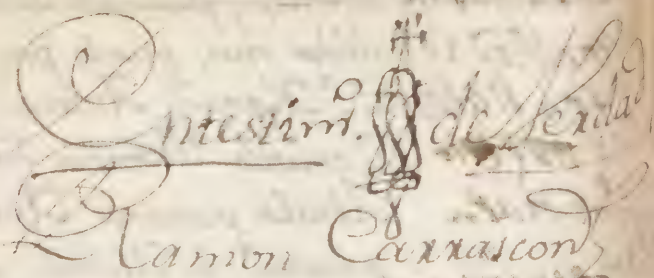 En testim.º de Verdad
Ramon Carrascon